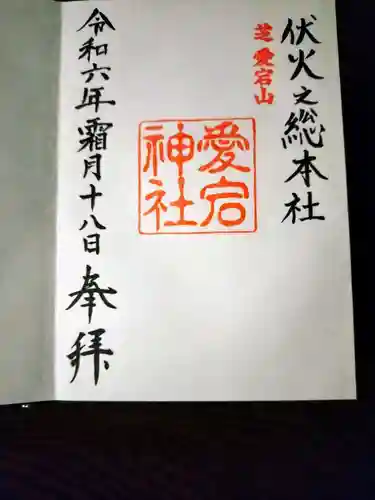 伏火之総本社
芝愛宕山
愛宕神社
令和六年霜月十八日奉拝